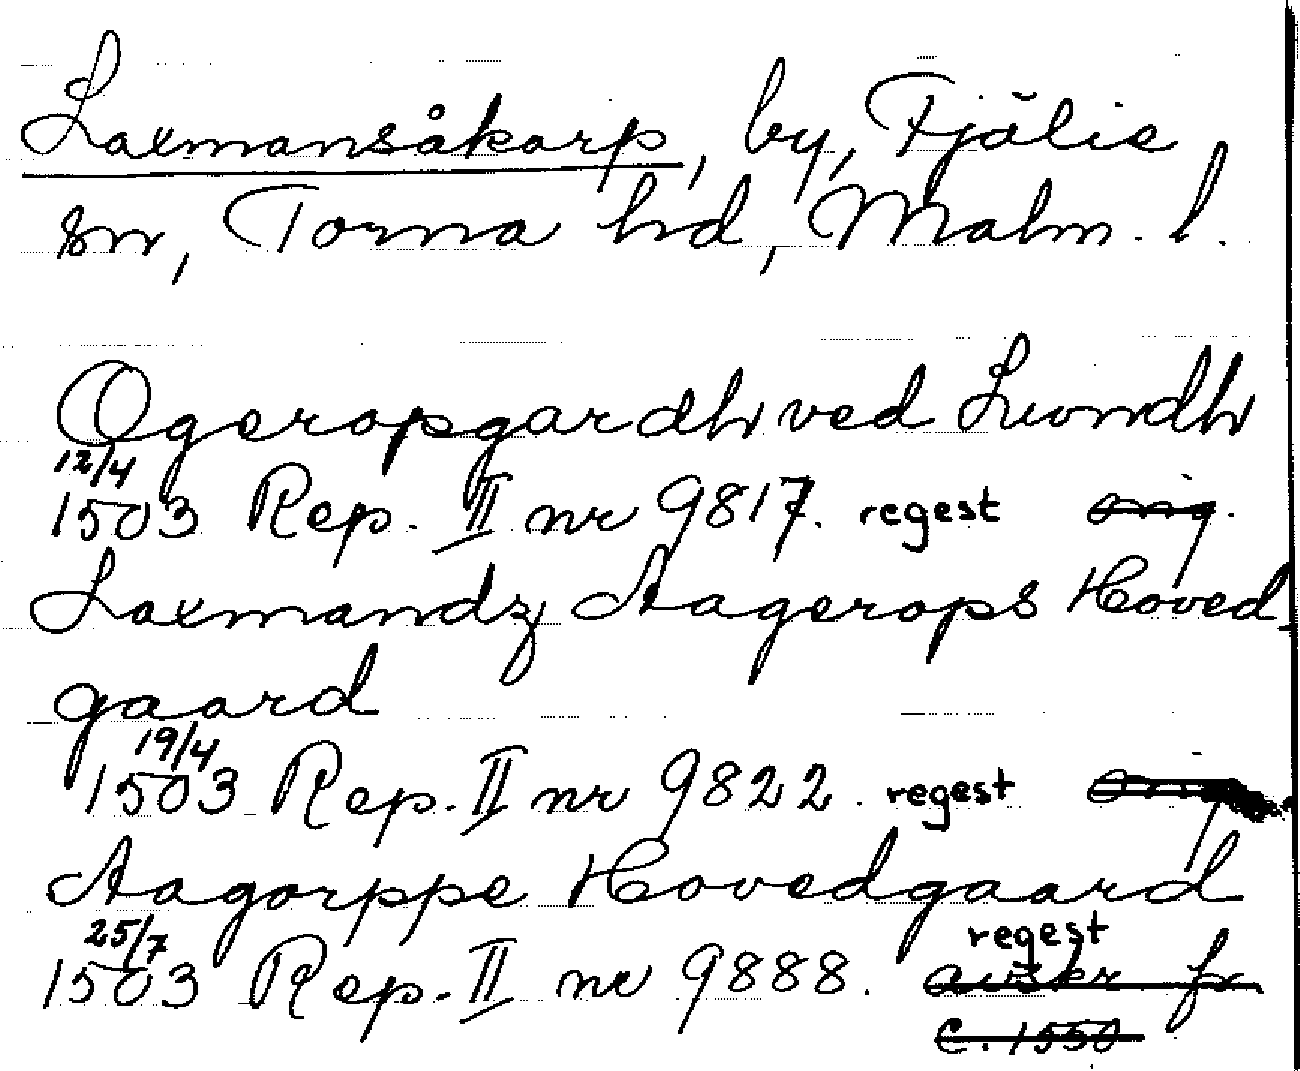 Laxmansåkarp, by, Fjälie
sn, Torna hd, Malm. l.
Ogeropgardh ved Lwndh
12/4
1503 Rep. II nr 9817. regest orig.
Laxmandz Aagerops Hoved-
gaard
19/4
1503 Rep. II nr 9822. regest orig
Aagorppe Hovedgaard
25/7 regest
1503 Rep. II nr 9888. avskr fr
c. 1550